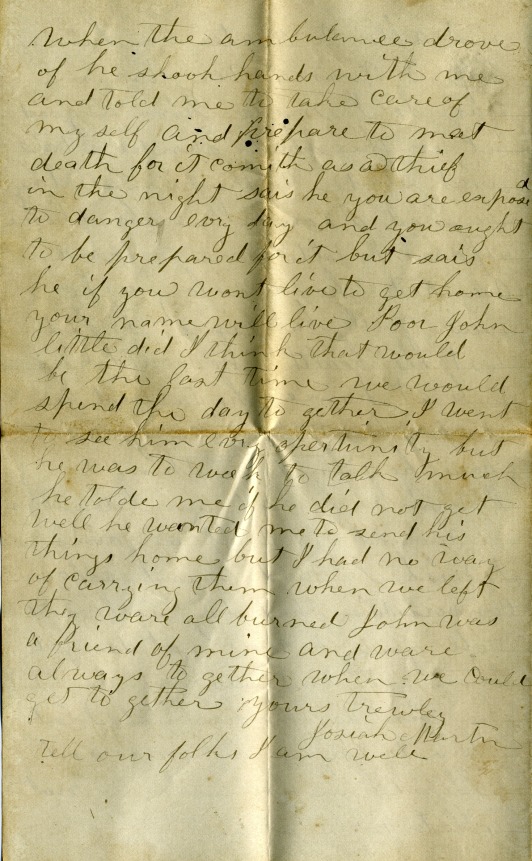 when the ambulancee drove
of he shook hands with me
and told me to take care of
my self and prepare to meat
death for it comith as a thief
in the night sais he you are exposed
to danger evry day and you ought
to be prepared for it but sais
he if you wont live to get home
your name will live Poor John
little did I think that would
be the last time we would
spend the day to gether I went
to see him evry opertunity but
he was to weak to talk much
he tolde me if he did not get
well he wanted me to send his
things home but I had no way
of carrying them when we left
they ware all burned John was
a friend of mine and ware
always to gether when we could
get to gether yours trewley
Josiah Martin
tell our folks I am well